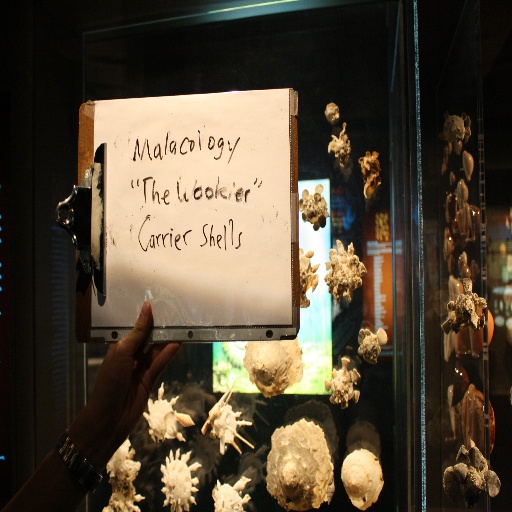 Malacology
"The Wookier"
Carrier Shells